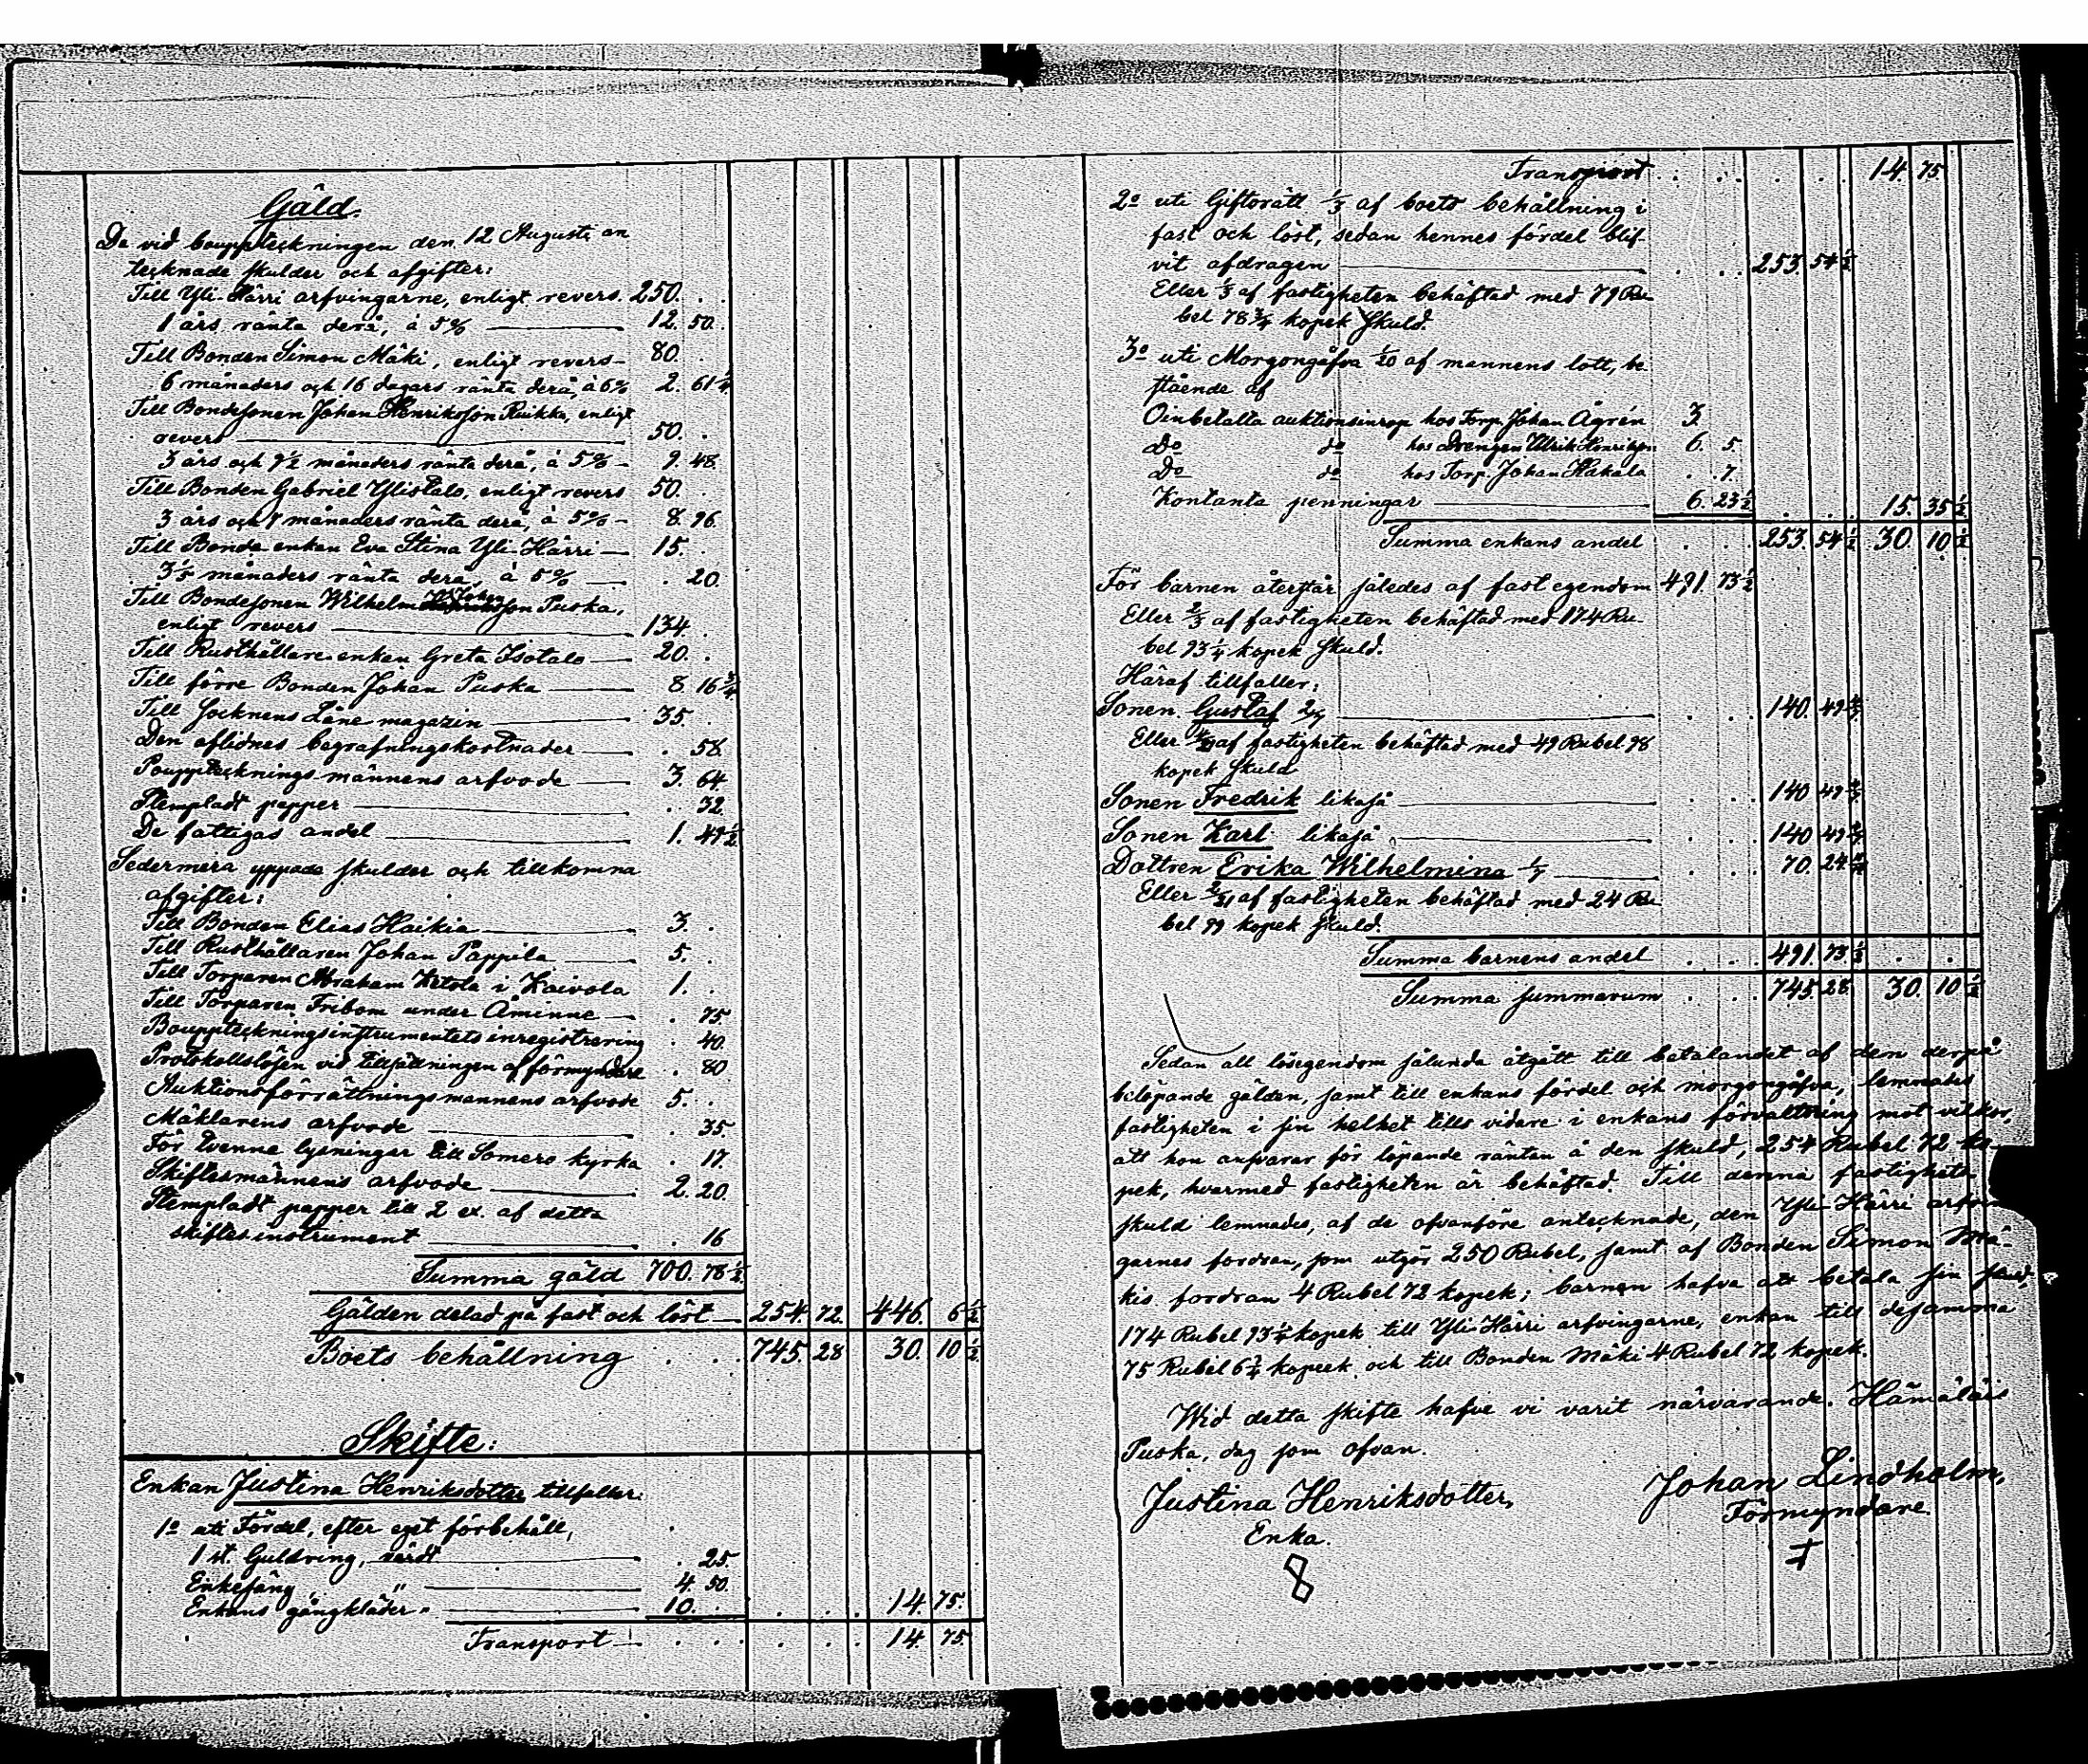 Gäld.
De vid bouppteckningen den 12 Augusti an
tecknade skulder och afgifter:
Till Yli-Härri arfvingarne, enligt revers. 250. . .
1 års ränta derå, à 5% — 12. 50.
Till Bonden Simon Mäki, enligt revers — 80. .
6 månaders och 16 dagars ränta derå, à 6% 2. 61 1/4
Till Bondesonen Johan Henriksson Ruikka, enligt
revers — 50. .
3 års och 9 1/2 månaders ränta derå, à 5% — 9. 48.
Till Bonden Gabriel Ylistalo, enligt revers 50. .
3 års och 7 månaders ränta derå, à 5% — 8. 96.
Till Bonde enkan Eva Stina Yli-Härri — 15. .
3 1/5 månaders ränta derå, à 5% — . 20.
Till Bondesonen Wilhelm Johansson Puska,
enligt revers — 134. .
Till Rusthållare enkan Greta Isotalo — 20. .
Till förre Bonden Johan Puska — 8. 16 3/4
Till Socknens Låne magazin — 35 .
Den aflidnes begrafningskostnader — . 58.
Bouppteckningsmännens arfvode — 3. 64.
Stempladt papper — . 32.
De fattigas andel — 1. 49 1/2
Sedermera yppade skulder och tillkomna
afgifter:
Till Bonden Elias Haikia — 3. .
Till Rusthållaren Johan Pappila — 5. .
Till Torparen Abraham Ketola i Kaivola 1. .
Till Torparen Fribom under Åminne — . 75.
Bouppteckningsinstrumentets inregistrering . 40.
Protokollslösen vid tillsättningen af förmyndare . 80.
Auktionsförrättningsmannens arfvode 5. .
Mäklarens arfvode — . 35.
För tvenne lysningar till Somero kyrka . 17.
Skiftesmännens arfvode — 2. 20.
Stempladt papper till 2 ex. af detta
skiftesinstrument — . 16
Summa gäld 700. 78 1/2
Gälden delad på fast och löst — 254. 72. 446. 6 1/2
Boets behållning . . . 745. 28 30. 10 1/2
Skifte:
Enkan Justina Henriksdotter tillfaller:
1o uti Fördel, efter eget förbehåll,
1 st. Guldring, värdt — . 25.
Enkesäng " — 4. 50.
Enkans gångkläder " — 10. . . . . 14. 75.
Transport — . . . . . . 14. 75.
Transport . . . . . . 14. 75
2o uti Giftorätt 1/3 af boets behållning i
fast och löst, sedan hennes fördel blif-
vit afdragen — . . . 253. 54 1/2
Eller 1/3 af fastigheten behäftad med 79 Ru-
bel 78 3/4 kopek skuld.
3o uti Morgongåfva 1/20 af mannens lott, be-
stående af
Oinbetalta auktionsinrop hos Torp. Johan Ågrén 3.
Do do hos Drengen Ulrik Henriksson 6. 5.
Do do hos Torp. Johan Hakala . 7.
Kontanta penningar — 6. 23 1/2 . . . 15. 35 1/2
Summa enkans andel . . . 253. 54 1/2 30. 10 1/2
För barnen återstår således af fast egendom 491. 73 1/2
Eller 2/3 af fastigheten behäftad med 174 Ru-
bel 93 1/4 kopek skuld.
Häraf tillfaller:
Sonen Gustaf 2/7 — . . . 140. 49
Eller 4/21 af fastigheten behäftad med 49 Rubel 98
kopek skuld
Sonen Fredrik likaså — . . . 140 49
Sonen Karl likaså — . . . 140 49
Dottren Erika Wilhelmina 1/7 — . . . 70. 24
Eller 2/21 af fastigheten behäftad med 24 Ru-
bel 99 kopek skuld.
Summa barnens andel . . . 491. 73 1/2 . .
Summa summarum . . . 745. 28. 30. 10 1/2
Sedan all lösegendom sålunda åtgått till betalandet af den derpå
belöpande gälden, samt till enkans fördel och morgongåfva, lemnades
fastigheten i sin helhet tills vidare i enkans förvaltning mot vilkor,
att hon ansvarar för löpande räntan å den skuld, 254 Rubel 72 ko-
pek, hvarmed fastigheten är behäftad. Till denna fastighets
skuld lemnades, af de ofvanföre antecknade, den Yli-Härri arfvin
garnes fordran, som utgör 250 Rubel, samt af Bonden Simon Mä-
kis fordran 4 Rubel 72 kopek; barnen hafva att betala sin skuld,
174 Rubel 93 1/4 kopek till Yli-Härri arfvingarne, enkan till desamma
75 Rubel 6 3/4 kopeek och till Bonden Mäki 4 Rubel 72 kopek.
Wid detta skifte hafve vi varit närvarande. Hämäläis
Puska, dag som ofvan.
Justina Henriksdotter, Johan Lindholm,
Enka. Förmyndare.